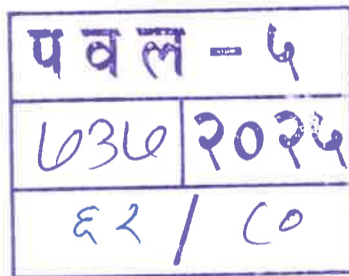 पवल - ५
७३७ २०२५
६२ / ८०